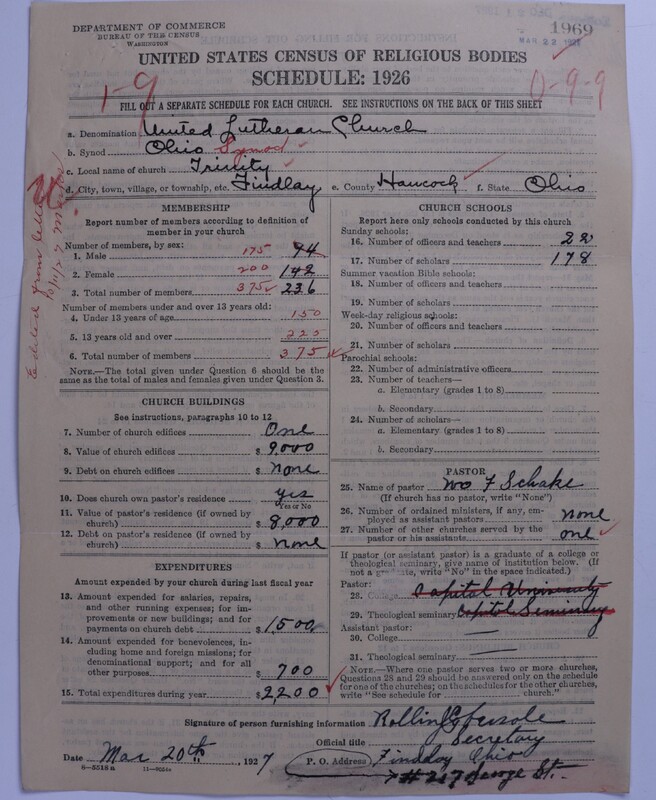 DEPARTMENT OF COMMERCE
BUREAU OF THE CENSUS
WASHINGTON
1969
MAR 22 1927
UNITED STATES CENSUS OF RELIGIOUS BODIES
SCHEDULE: 1926
1-9
0-9-9
FILL OUT A SEPARATE SCHEDULE FOR EACH CHURCH. SEE INSTRUCTIONS ON THE BACK OF THIS SHEET
a. Denomination United Lutheran Church
b. Synod Ohio Synod
c. Local name of church Trinity
d. City, town, village, or township, etc. Findlay e. County Hancock f. State Ohio
Edited from letter
10/11/27
MEMBERSHIP
Report number of members according to definition of
member in your church
Number of members, by sex:
1. Male 175 94
2. Female 200 142
3. Total number of members 375 236
Number of members under and over 13 years old:
4. Under 13 years of age 150
5. 13 years old and over 225
6. Total number of members 375
NOTE.—The total given under Question 6 should be the
same as the total of males and females given under Question 3.
CHURCH BUILDINGS
See instructions, paragraphs 10 to 12
7. Number of church edifices One
8. Value of church edifices $ 9,000
9. Debt on church edifices $ None
10. Does church own pastor's residence yes
Yes or No
11. Value of pastor's residence (if owned by
church) $ 8,000
12. Debt on pastor's residence (if owned by
church) $ None
EXPENDITURES
Amount expended by your church during last fiscal year
13. Amount expended for salaries, repairs,
and other running expenses; for im-
provements or new buildings; and for
payments on church debt $ 1,500
14. Amount expended for benevolences, in-
cluding home and foreign missions; for
denominational support; and for all
other purposes $ 700
15. Total expenditures during year $ 2,200
CHURCH SCHOOLS
Report here only schools conducted by this church
Sunday schools:
16. Number of officers and teachers 22
17. Number of scholars 178
Summer vacation Bible schools:
18. Number of officers and teachers
19. Number of scholars
Week-day religious schools:
20. Number of officers and teachers
21. Number of scholars
Parochial schools:
22. Number of administrative officers
23. Number of teachers—
a. Elementary (grades 1 to 8)
b. Secondary
24. Number of scholars—
a. Elementary (grades 1 to 8)
b. Secondary
PASTOR
25. Name of pastor Wo F Schake
(If church has no pastor, write "None")
26. Number of ordained ministers, if any, em-
ployed as assistant pastors None
27. Number of other churches served by the
pastor or his assistants one
If pastor (or assistant pastor) is a graduate of a college or
theological seminary, give name of institution below. (If
not a graduate, write "No" in the space indicated.)
Pastor:
28. College Capital University
29. Theological seminary Capitol Seminary
Assistant pastor:
30. College
31. Theological seminary
NOTE.—Where one pastor serves two or more churches,
Questions 28 and 29 should be answered only on the schedule
for one of the churches; on the schedules for the other churches,
write "See schedule for church."
Signature of person furnishing information Rollin Ebersole
Official title Secretary
Date Mar 20th, 1927 P. O. Address Findlay Ohio
8-5518a 11-9024a
# 217 George St.